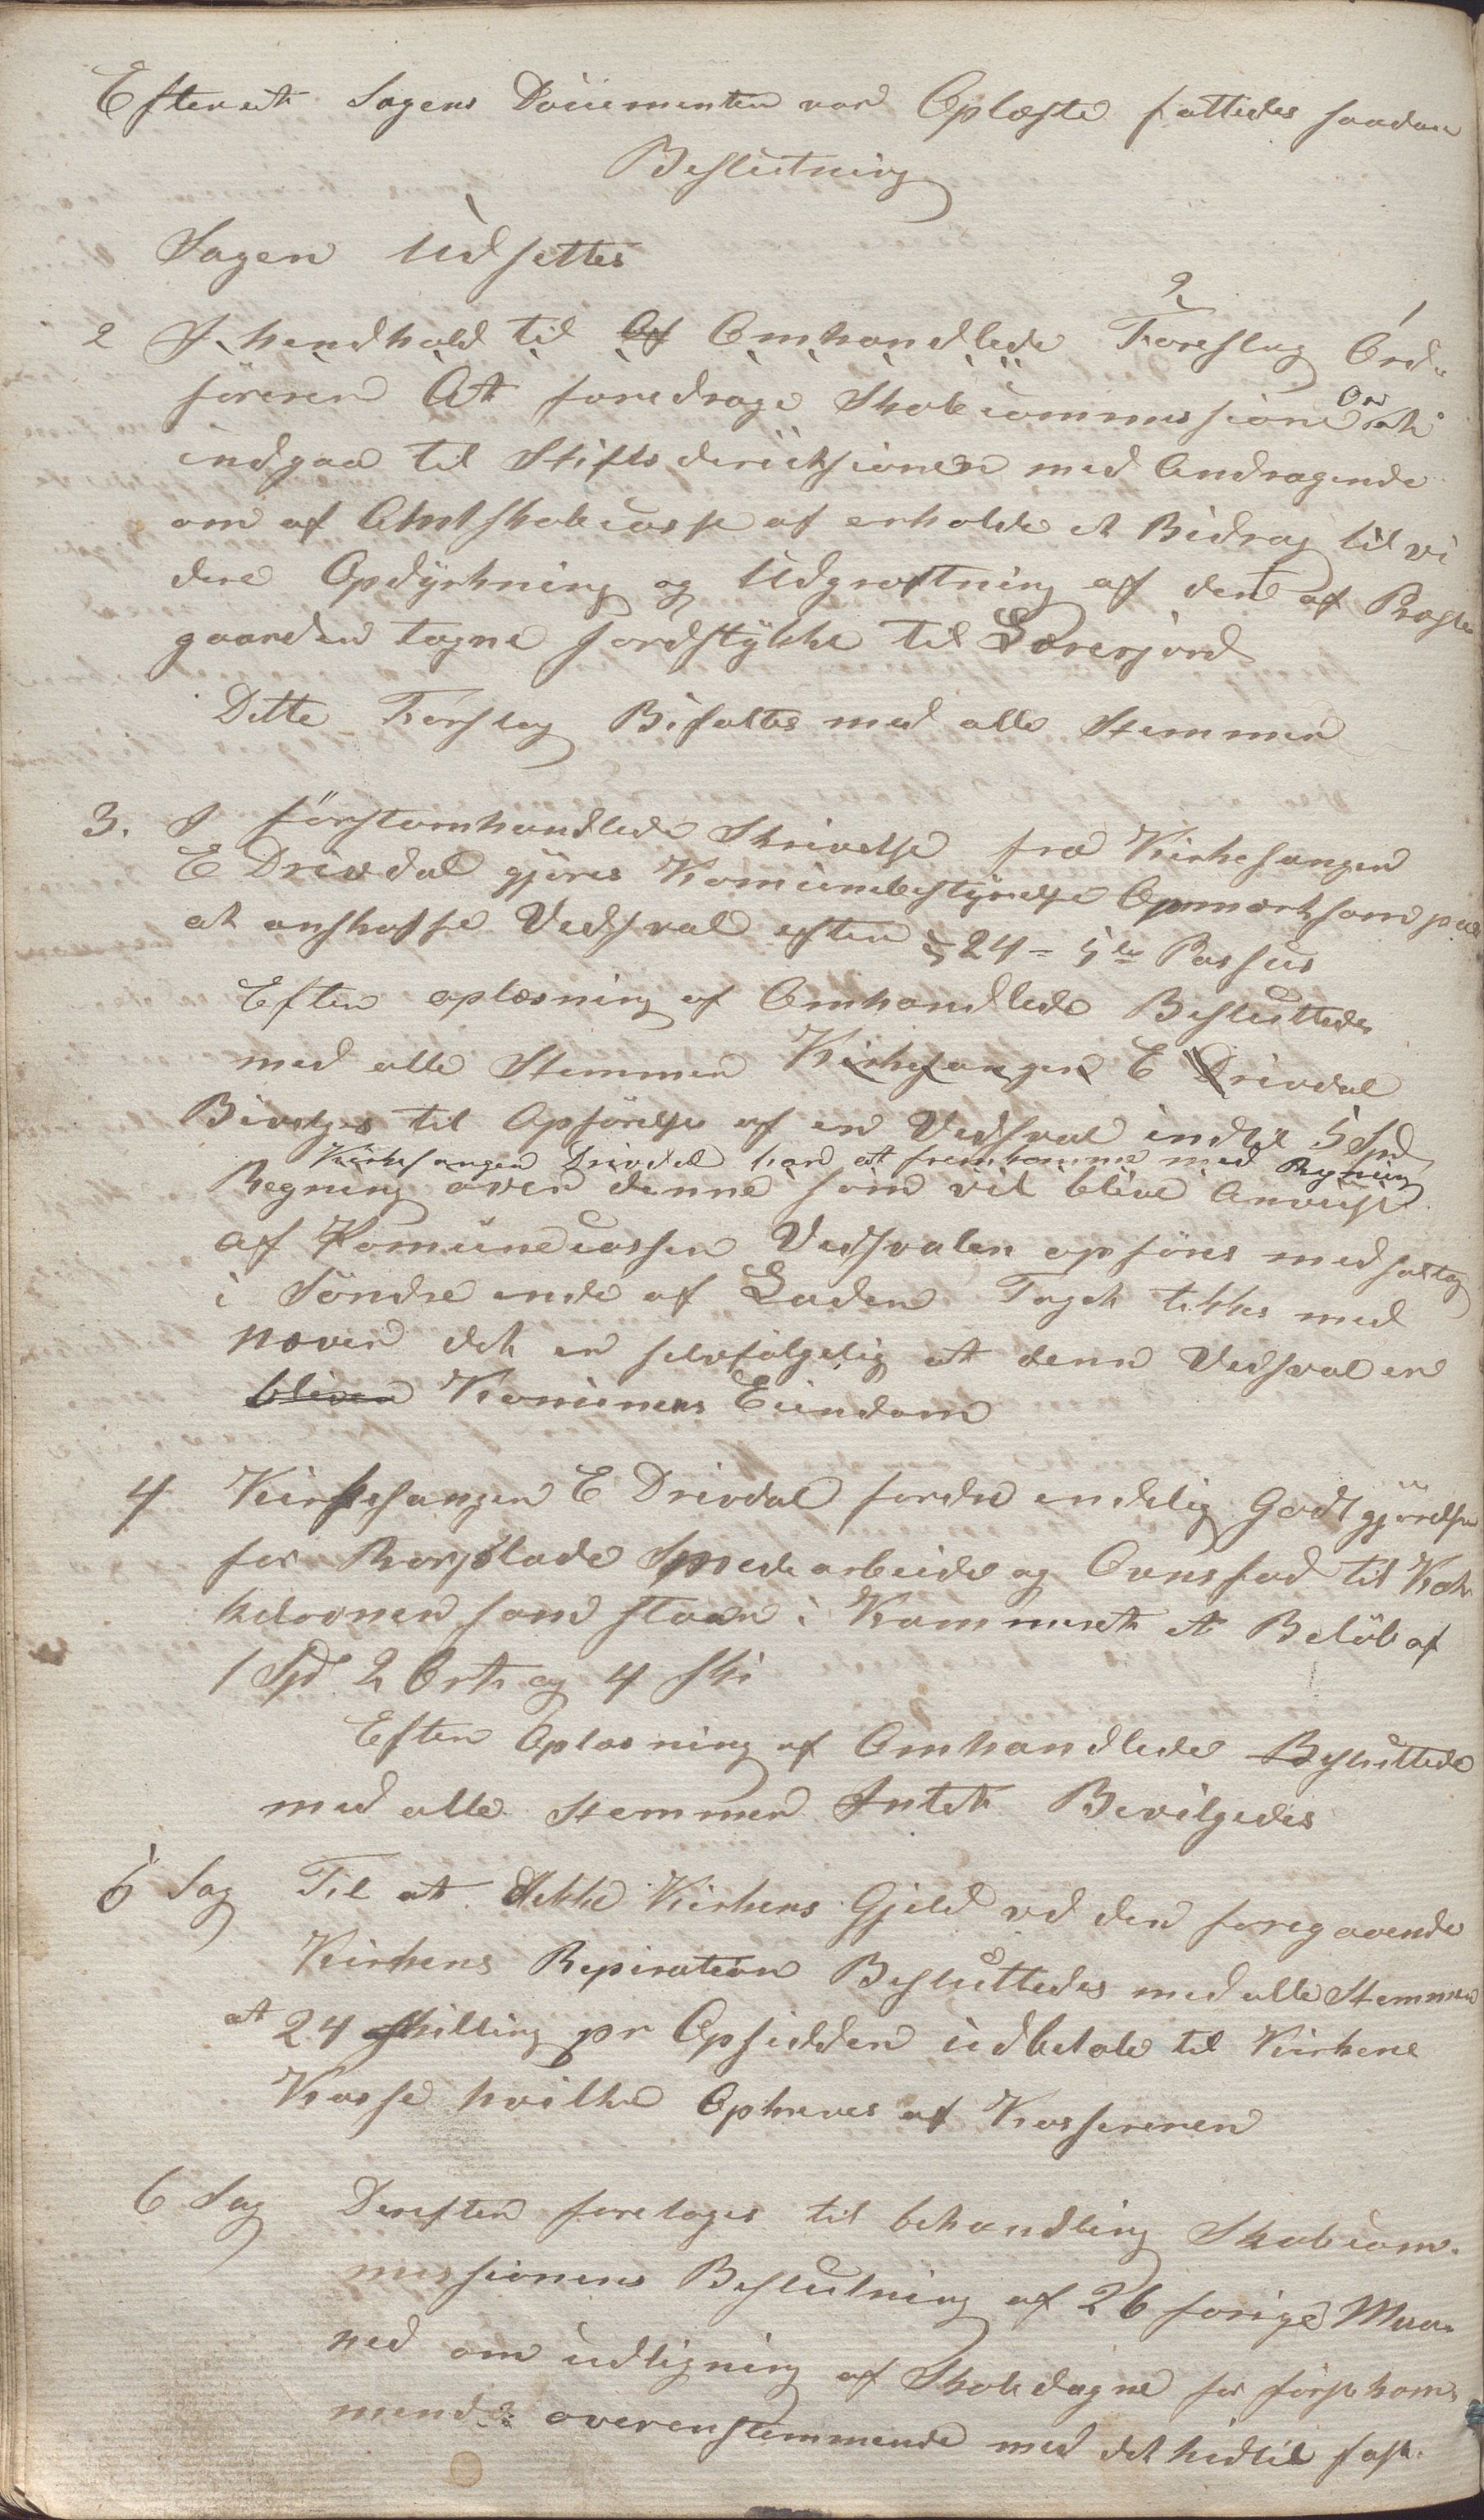 Efterat Sagens Documenter var Oplæste fattedes saadan
Beslutning
Sagen Udsettes
2 I henhold til Af Omhandlede Foreslag Ord-
2 1
föreren At foredrage Skolecommissionen at
indgaa til Stiftsdirektionen med Andragende
om af Amtskolecasse at erholde et Bidrag til vi
dere Opdyrkning og Udgrøftning af den af Præste
gaarden tagne Jordstykke til Lærerjord
Dette Forslag Bifaltes med alle Stemmer
3. I förstomhandlede Skrivelse fra Kirkesanger
E Drivdal gjöres Komunebestyrelse Opmærksom paa
at anskaffe Vedsval efter § 24 = 5te Passus
Efter oplæsning af Omhandlede Besluttedes
med alle Stemmer Kirkesanger E Drivdal
Bivilges til Opförelse af en Vedsval indtil 5 Spd
Kirkesanger Drivdal har at fremkomme med Regning
Regning over denne som vil blive Anvist
af Komunecassen Vedsvalen opföres med haltag
i Söndre ende af Laden Taget tekkes med
næver det er selvfölgelig at denn Vedsval er
bliver Komunens Eiendom
4 Kirkesanger E Drivdal fordre endelig Godtgjörelse
for Rorplade Smedearbeide og Ovnsfod til Kak
kelovnen som staar i Kammeret et Belöb af
1 Spd 2 Ort og 4 ski
Efter Oplæsning af Omhandlede Besluttede
med alle Stemmer Intet Bevilgedes
5 Sag Til at dekke Kirkens Gjeld ved den foregaaende
Kirkens Repiration Besluttedes med alle Stemmer
at 24 Skilling pr Opsidder udbetale til Kirkene
Kasse hvilke Opkreves af Kassereren
6 Sag Derefter foretages til behandling Skolecom-
missionens Beslutning af 26 forige Maa-
ned om udligning af Skoledagne for förstkom-
mende overenstemmende med det hidtil fast-